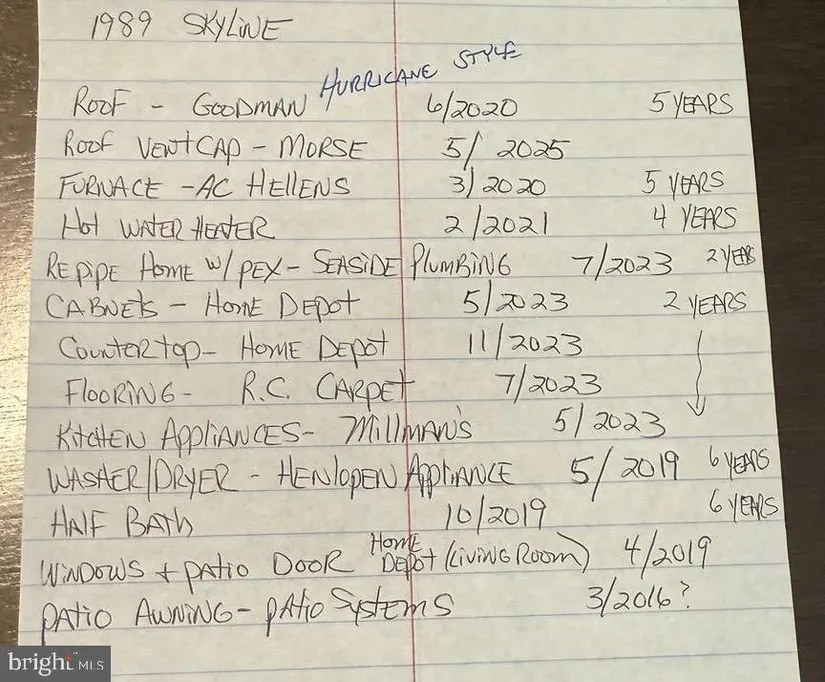 1989 SKYLINE
HURRICANE STYLE
ROOF - GOODMAN 6/2020 5 YEARS
ROOF VENT CAP - MORSE 5/ 2025
FURNACE - AC HELLENS 3/2020 5 YEARS
Hot WATER HEATER 2/2021 4 YEARS
RE pipe Home w/ pex - SEASIDE PLUMBING 7/2023 2 YEARS
CABNETS - HOME DEPOT 5/2023 2 YEARS
COUNTERTOP - HOME DEPOT 11/2023
FLOORING - R.C. CARPET 7/2023
KITCHEN APPLIANCES - MILLMAN'S 5/2023
WASHER/DRYER - HENLOPEN APPLIANCE 5/2019 6 YEARS
HALF BATH 10/2019 6 YEARS
WINDOWS + PATIO DOOR HOME DEPOT (LIVING ROOM) 4/2019
PATIO AWNING - PATIO SYSTEMS 3/2016?
bright MLS